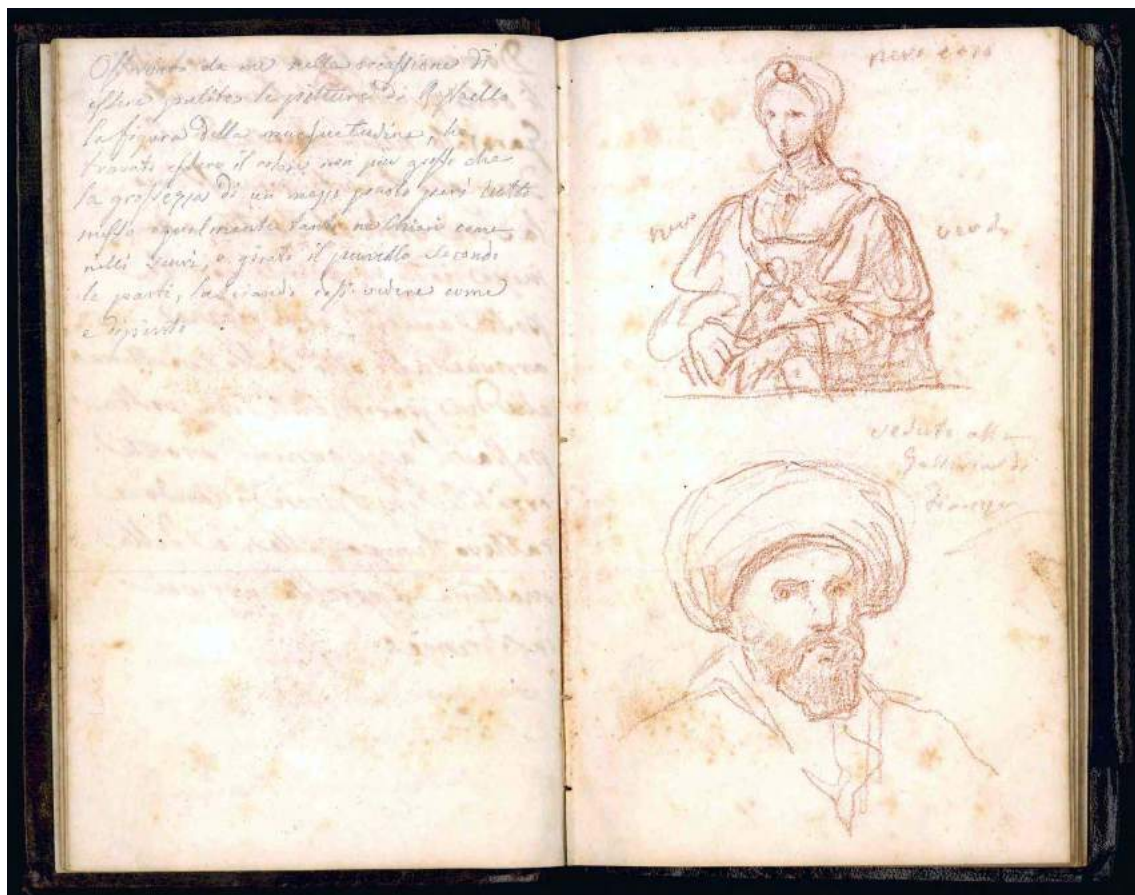 Osservato da me nella occassione di
essere pulite le pitture di Raffaello
la figura della mansuetudine, ho
trovato essere il colore non piu grosso che
la grossezza di un mezzo paolo
messo egualmente tanto ne chiari come
nelli scuri, e girato il pennello secondo
le parti, lasciando cosi vedere come
e dipinto
nero
nero
verde
veduto alla
Galleria di
Firenze